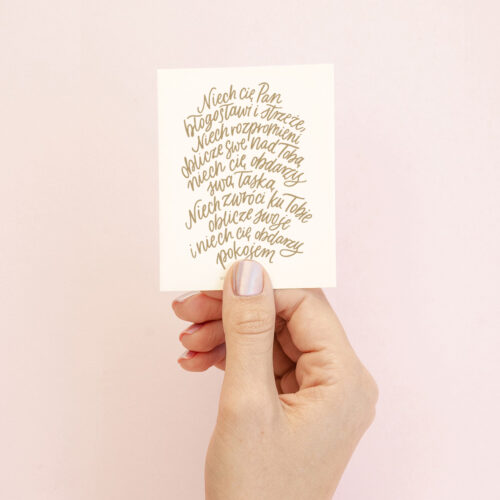 Niech cię Pan
błogosławi i strzeże,
Niech rozpromieni
oblicze swe nad Tobą,
niech cię obdarzy
swą łaską,
Niech zwróci ku Tobie
oblicze swoje
i niech cię obdarzy
pokojem